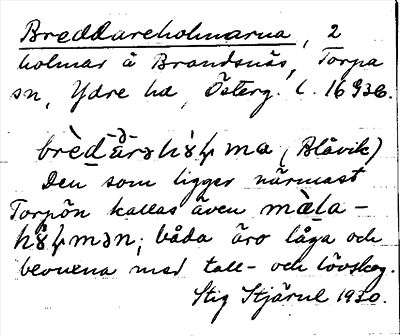 Breddareholmarna, 2
holmar å Brandsnäs, Torpa
sn, Ydre hd, Österg. l. 1693 b.
(Blåvik)
Den som ligger närmast
Torpön kallas även mὰla-
båda äro låga och
bevuxna med tall- och lövskog.
Stig Stjärul 1930.